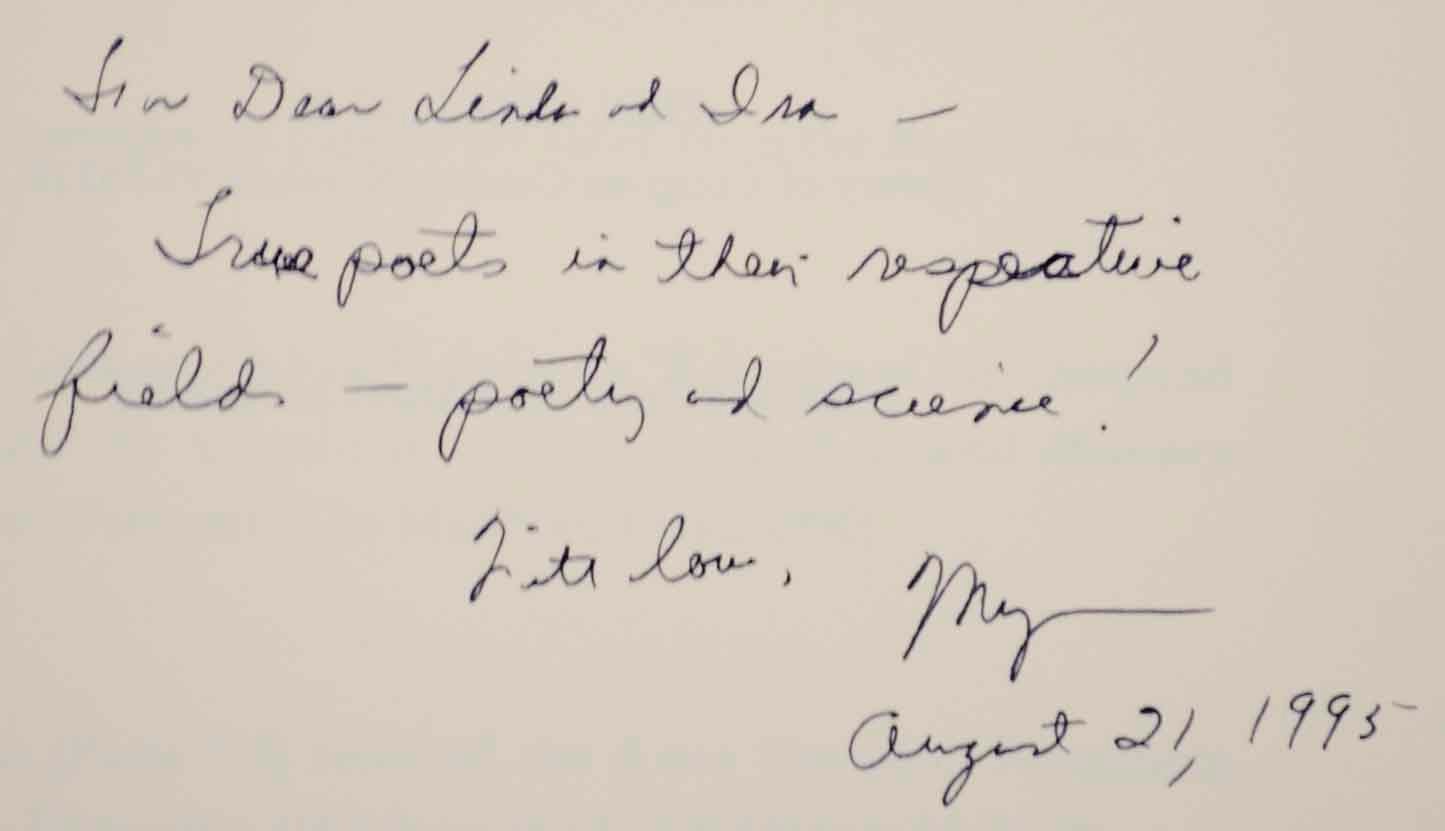 For Dear Linda and Ira —
True poets in their respective
fields — poetry and science!
With love,
August 21, 1995